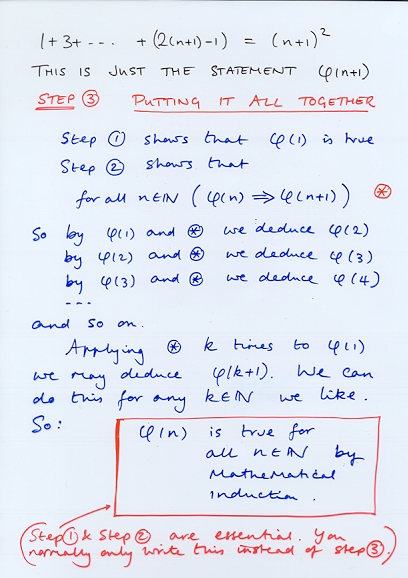 1+3+--- +(2(n+1)-1) = (n+1)²
THIS IS JUST THE STATEMENT φ(n+1)
STEP ③ PUTTING IT ALL TOGETHER
Step ① shows that φ(1) is true
Step ② shows that
for all n∈ℕ (φ(n) ⟹ φ(n+1)) ⊛
So by φ(1) and ⊛ we deduce φ(2)
by φ(2) and ⊛ we deduce φ(3)
by φ(3) and ⊛ we deduce φ(4)
---
and so on.
Applying ⊛ k times to φ(1)
we may deduce φ(k+1). We can
do this for any k∈ℕ we like.
So:
φ(n) is true for
all n∈ℕ by
Mathematical
Induction.
(Step ① & Step ② are essential. You
normally only write this instead of step ③.)